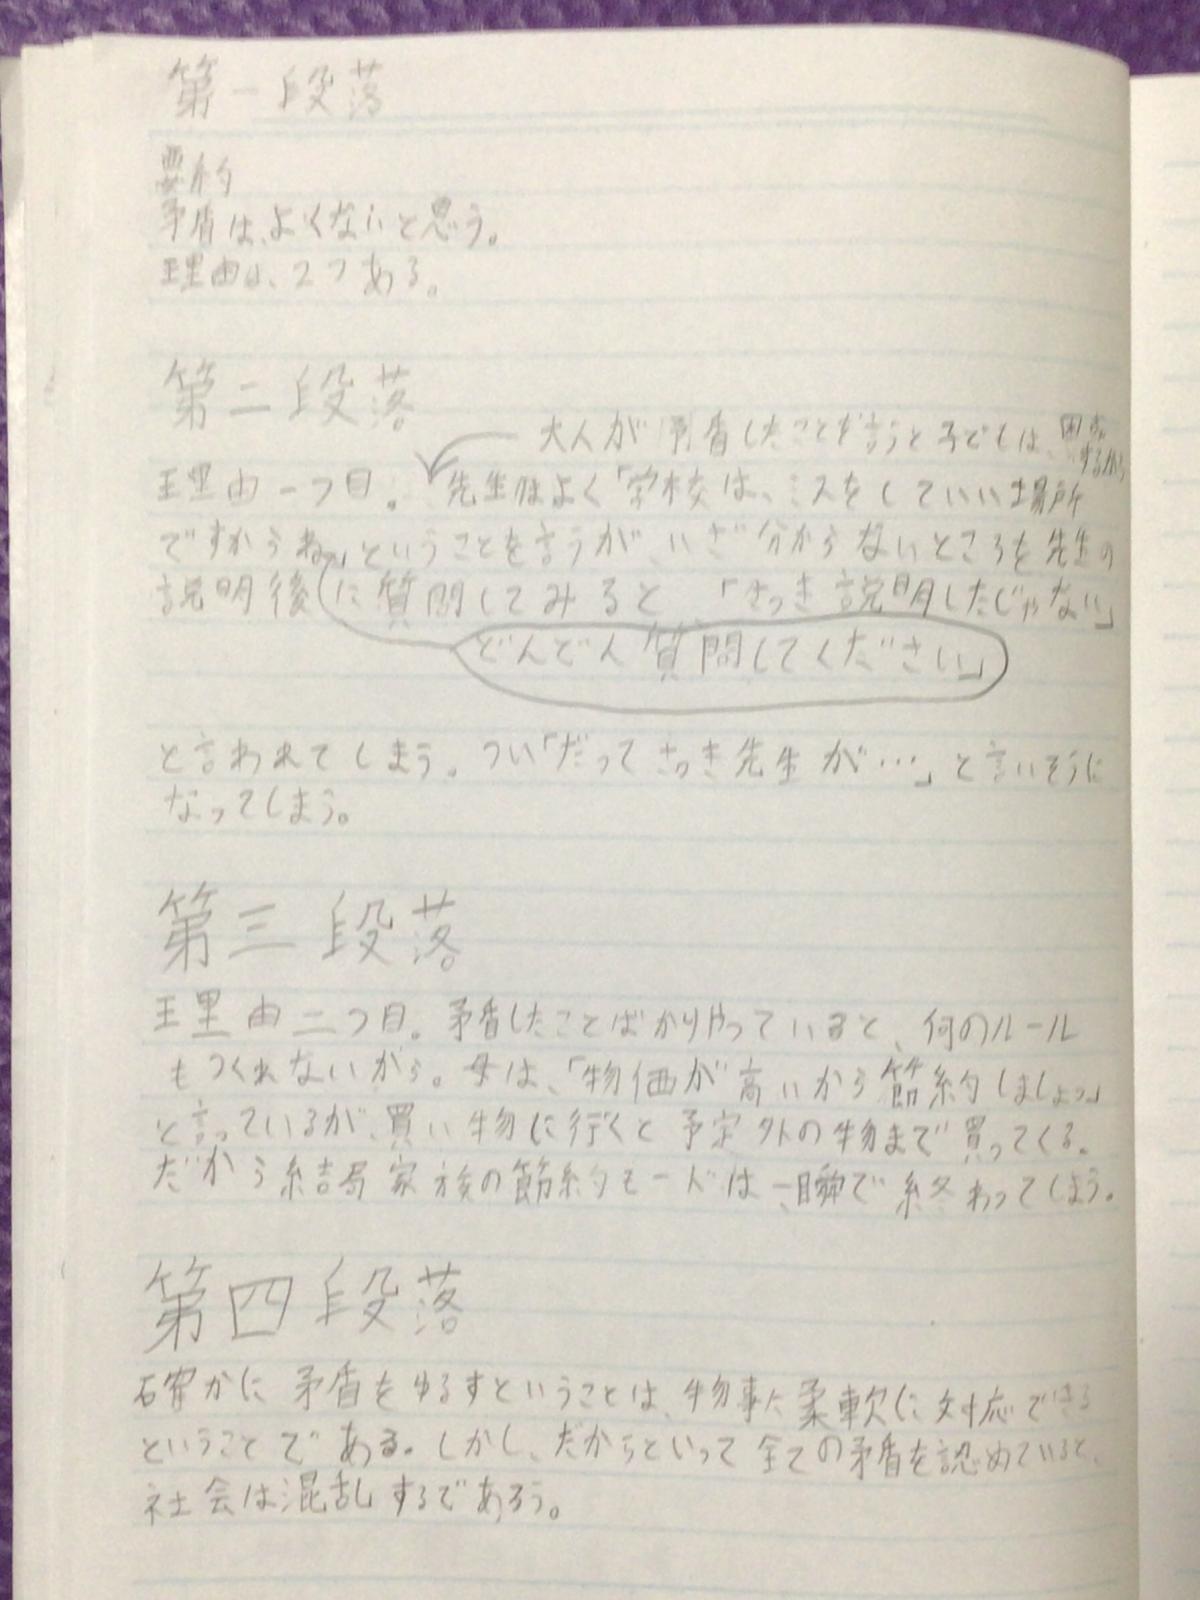 第一段落
要約
矛盾は、よくないと思う。
理由は、2つある。
第二段落
大人が矛盾したことを言うと子どもは、困惑するから
理由一つ目。先生はよく「学校は、ミスをしていい場所
ですからね」ということを言うが、いざ分からないところを先生の
説明後に質問してみると「さっき説明したじゃない」
どんどん質問してください」
と言われてしまう。つい「だってさっき先生が…」と言いそうに
なってしまう。
第三段落
理由二つ目。矛盾したことばかりやっていると、何のルール
もつくれないから。母は、「物価が高いから節約しましょっ」
と言っているが、買い物に行くと予定外の物まで買ってくる。
だから結局家族の節約モードは一瞬で終わってしまう。
第四段落
確かに矛盾をゆるすということは、物事に柔軟に対応できる
ということである。しかし、だからといって全ての矛盾を認めていると、
社会は混乱するであろう。